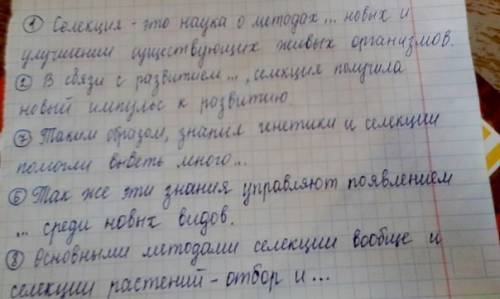 ① Селекция - это наука о методах ... новых и
улучшении существующих живых организмов.
② В связи с развитием ..., селекция получила
новый импульс к развитию.
⑦ Таким образом, знания генетики и селекции
помогли выветь много ...
⑥ Так же эти знания управляют появлением
... среди новых видов.
③ Основными методами селекции вообще и
селекции растений - отбор и ...